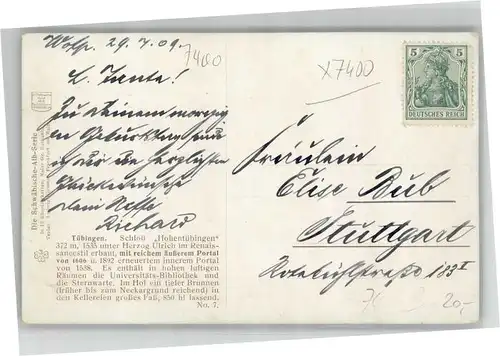 29.7.09.
7400
L. Tante!
X7400
Zu Deinem morgigen
Geburtstag send
ich Dir die herzlichsten
Glückwünsche
Dein Neffe
Richard
5 5
DEUTSCHES REICH
Fräulein
Elise Bub
Stuttgart
183 II
20,-
Die Schwäbische-Alb-Serie
Tübingen. Schloß „Hohentübingen"
372 m, 1535 unter Herzog Ulrich im Renais-
sancestil erbaut, mit reichem äußerem Portal
von 1606 u. 1892 erneuertem innerem Portal
von 1538. Es enthält in hohen luftigen
Räumen die Universitäts-Bibliothek und
die Sternwarte. Im Hof ein tiefer Brunnen
(früher bis zum Neckargrund reichend) in
den Kellereien großes Faß, 850 hl fassend.
No. 7.